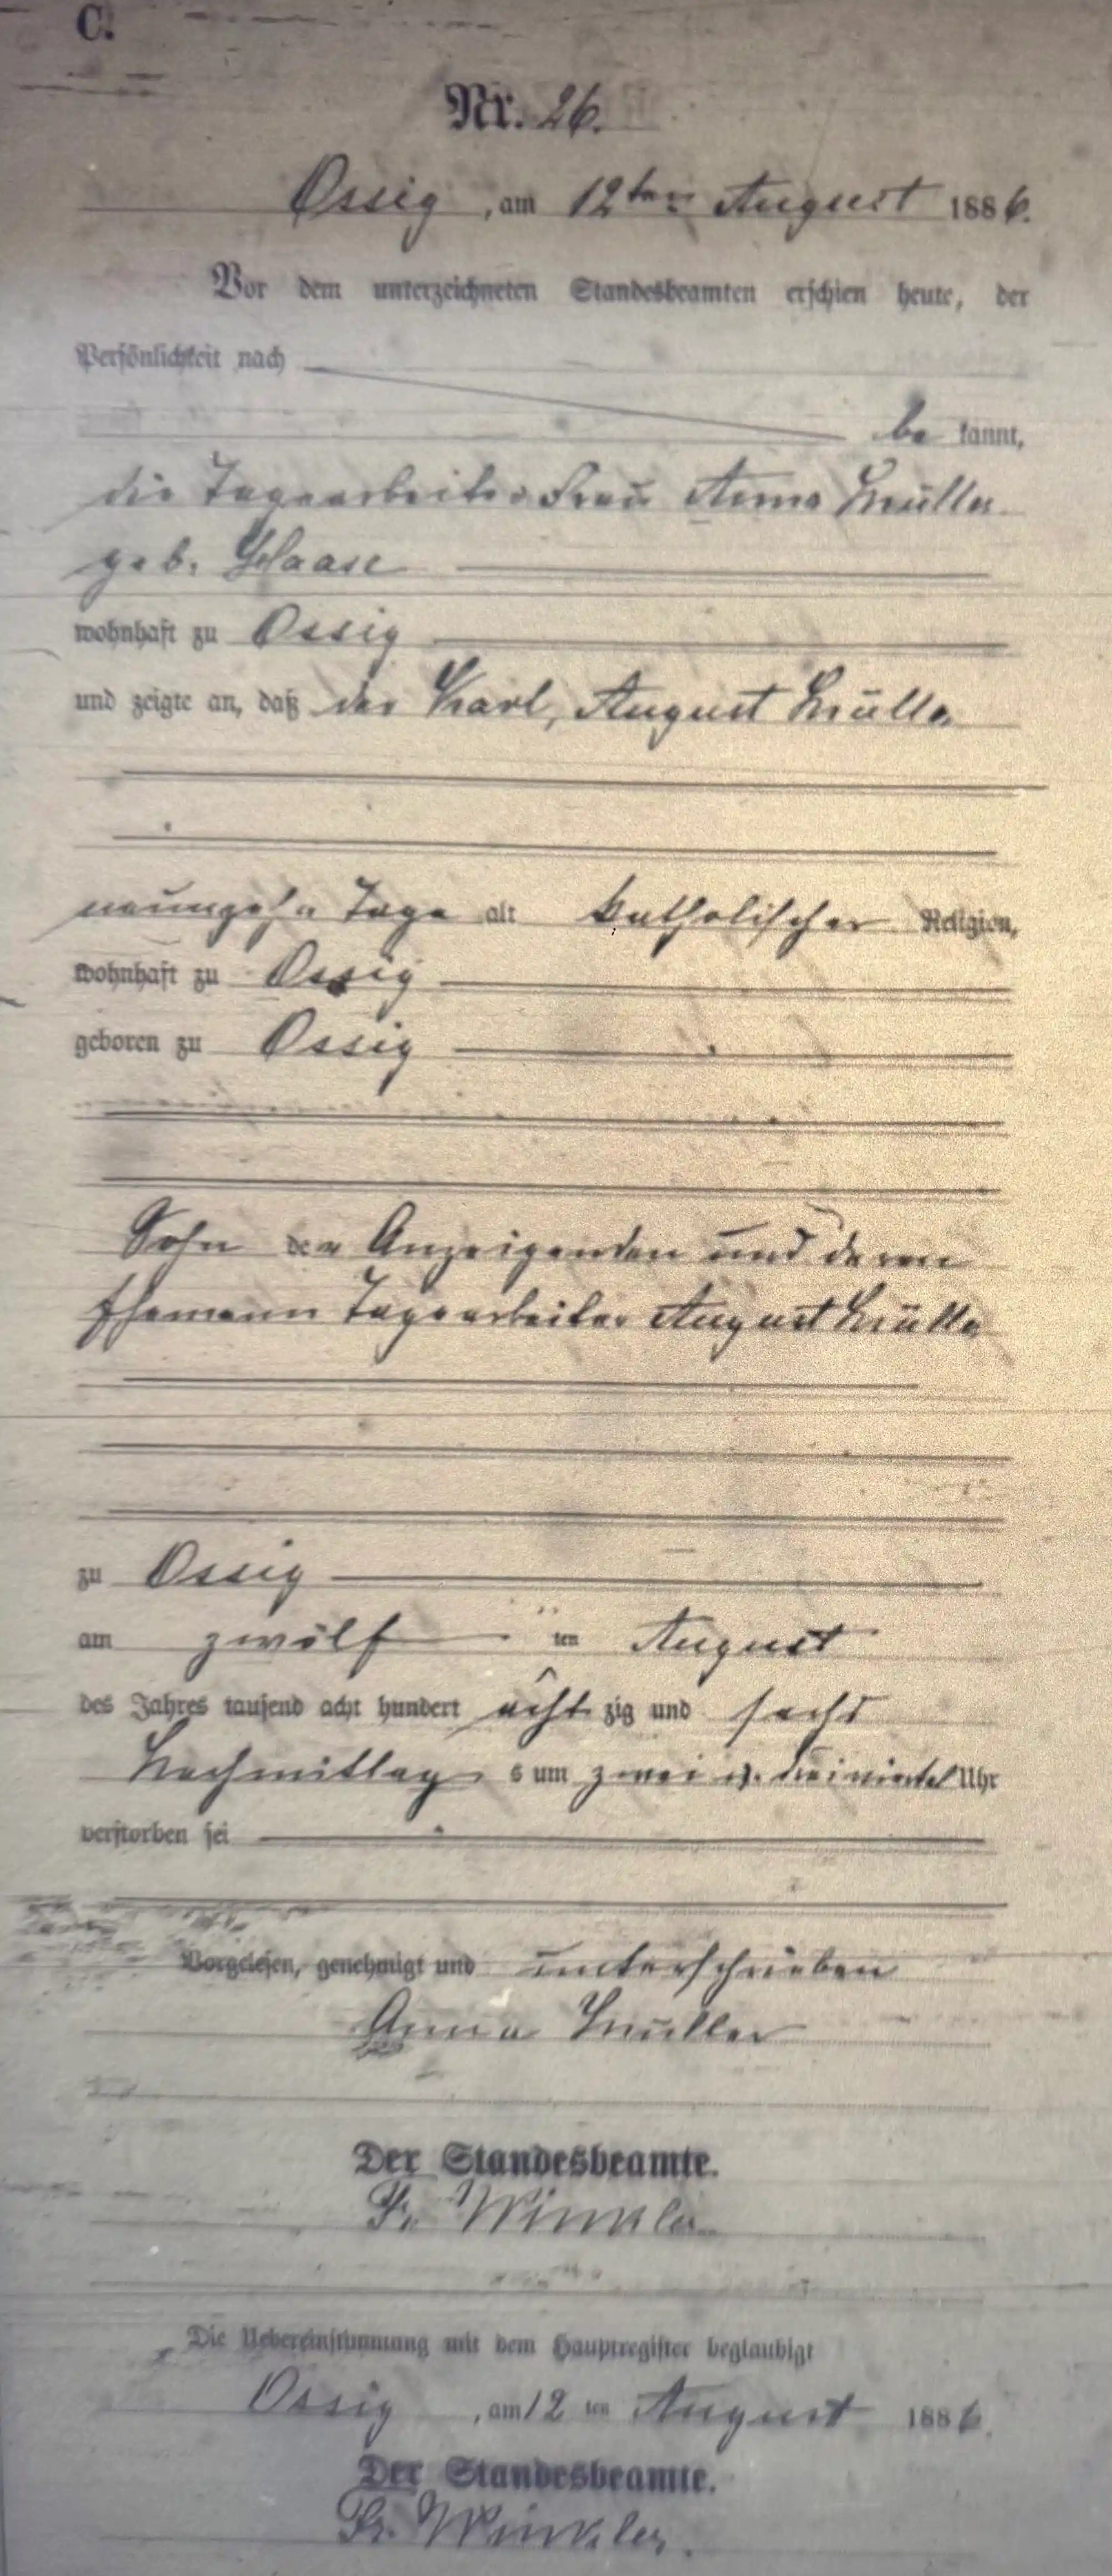 C.
Nr. 26.
Ossig, am 12ten August 1886.
Vor dem unterzeichneten Standesbeamten erschien heute, der
Persönlichkeit nach
be kannt,
die Tagearbeiter Frau Anna Müller
geb. Haase
wohnhaft zu Ossig
und zeigte an, daß der Karl, August Müller
neunzehn Tage alt katholischer Religion,
wohnhaft zu Ossig
geboren zu Ossig
Sohn der Anzeigenden und deren
Ehemann Tagearbeiter August Müller
zu Ossig
am zwölf ten August
des Jahres tausend acht hundert acht zig und sechs
Nachmittag s um zwei u. dreiviertel Uhr
verstorben sei
Vorgelesen, genehmigt und unterschrieben
Anna Müller
Der Standesbeamte.
Fr. Winkler
Die Uebereinstimmung mit dem Hauptregister beglaubigt
Ossig, am 12 ten August 1886.
Der Standesbeamte.
Fr. Winkler.